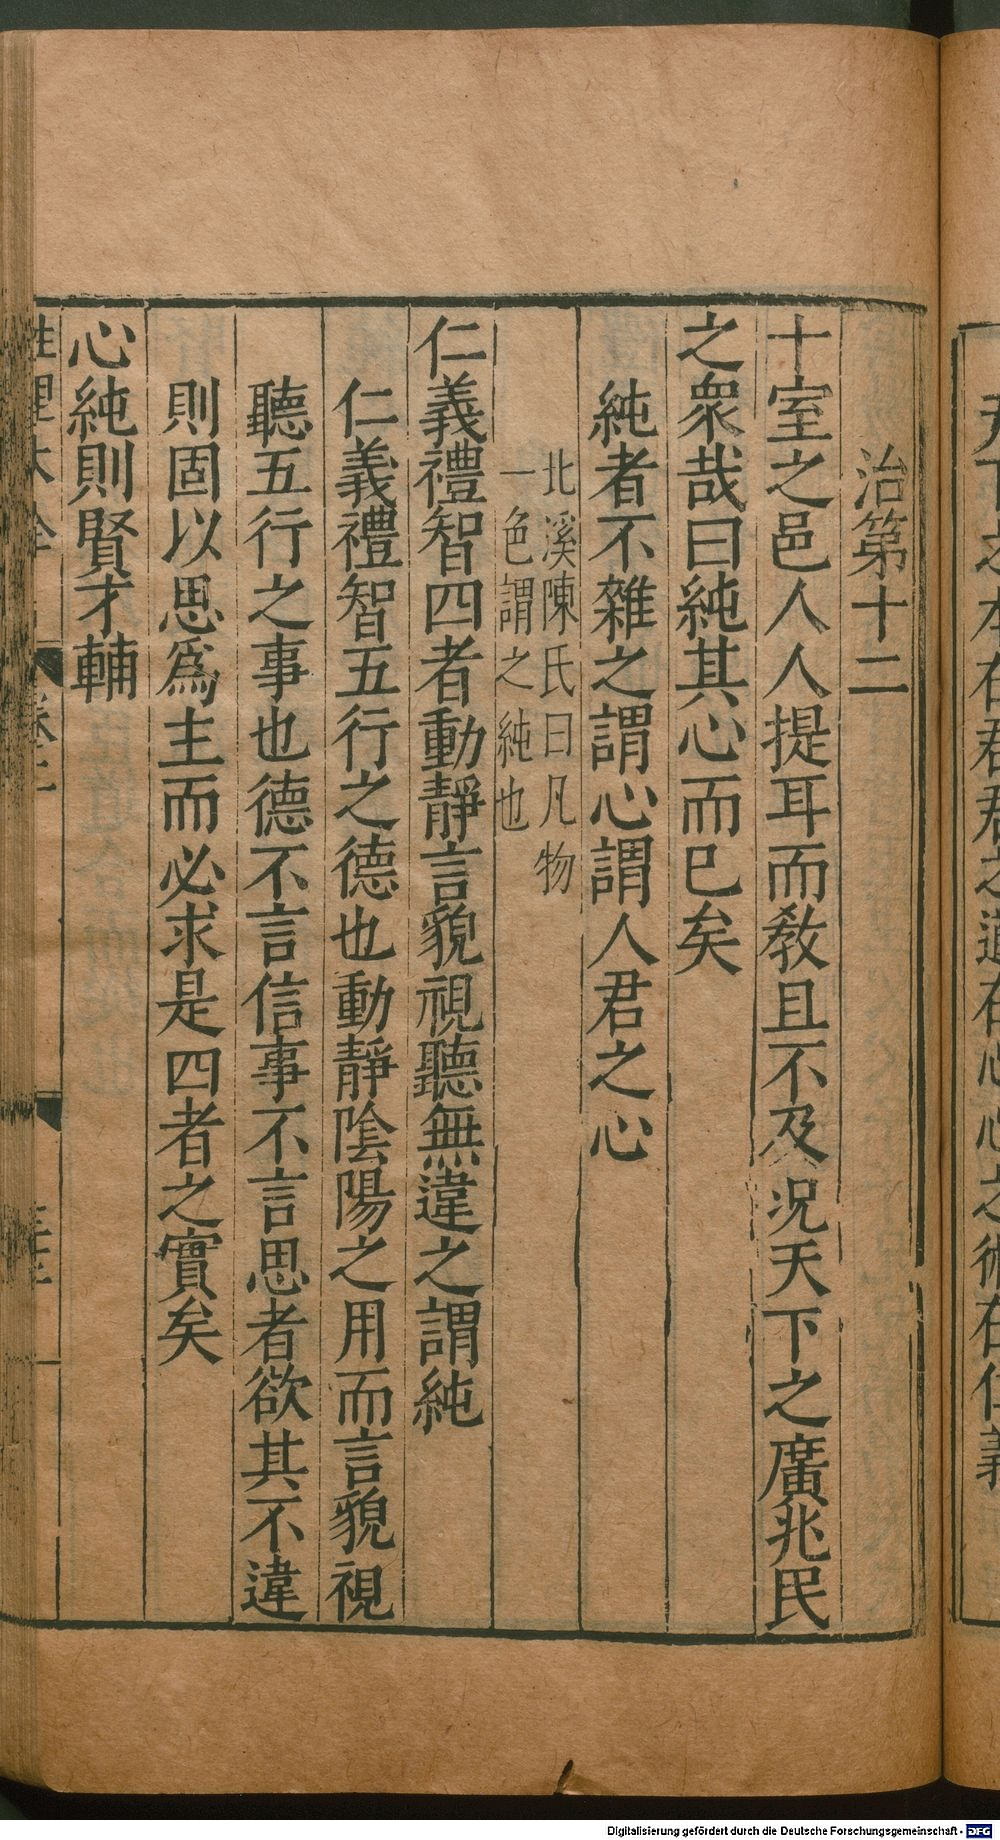 治第十二
十室之邑人人提耳而敎且不及况天下之廣兆民
之衆哉曰純其心而已矣
純者不雜之謂心謂人君之心
北溪陳氏曰凡物
一色謂之純也
仁義禮智四者動靜言貌視聽無違之謂純
仁義禮智五行之德也動靜陰陽之用而言貌視
聽五行之事也德不言信事不言思者欲其不違
則固以思爲主而必求是四者之實矣
心純則賢才輔
性理大全
卷二
Digitalisierung gefördert durch die Deutsche Forschungsgemeinschaft - DFG